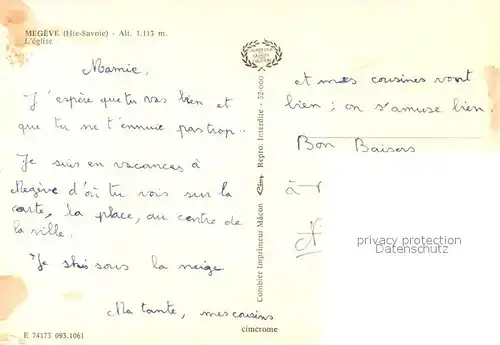 MEGÈVE (Hte-Savoie) - Alt. 1.113 m.
L'église
Mamie,
J'espère que tu vas bien et
que tu ne t'ennuie pas trop..
Je suis en vacances à
Megève d'où tu vois sur la
carte, la place, au centre de
la ville.
Je skis sous la neige
Ma tante, mes cousins
et mes cousines vont
bien ; on s'amuse bien
Bon Baisers
à
privacy protection
Datenschutz
Combier Imprimeur Mâcon Cim Repro. Interdite - 32-000
E 74173 093.1061
cimcrome